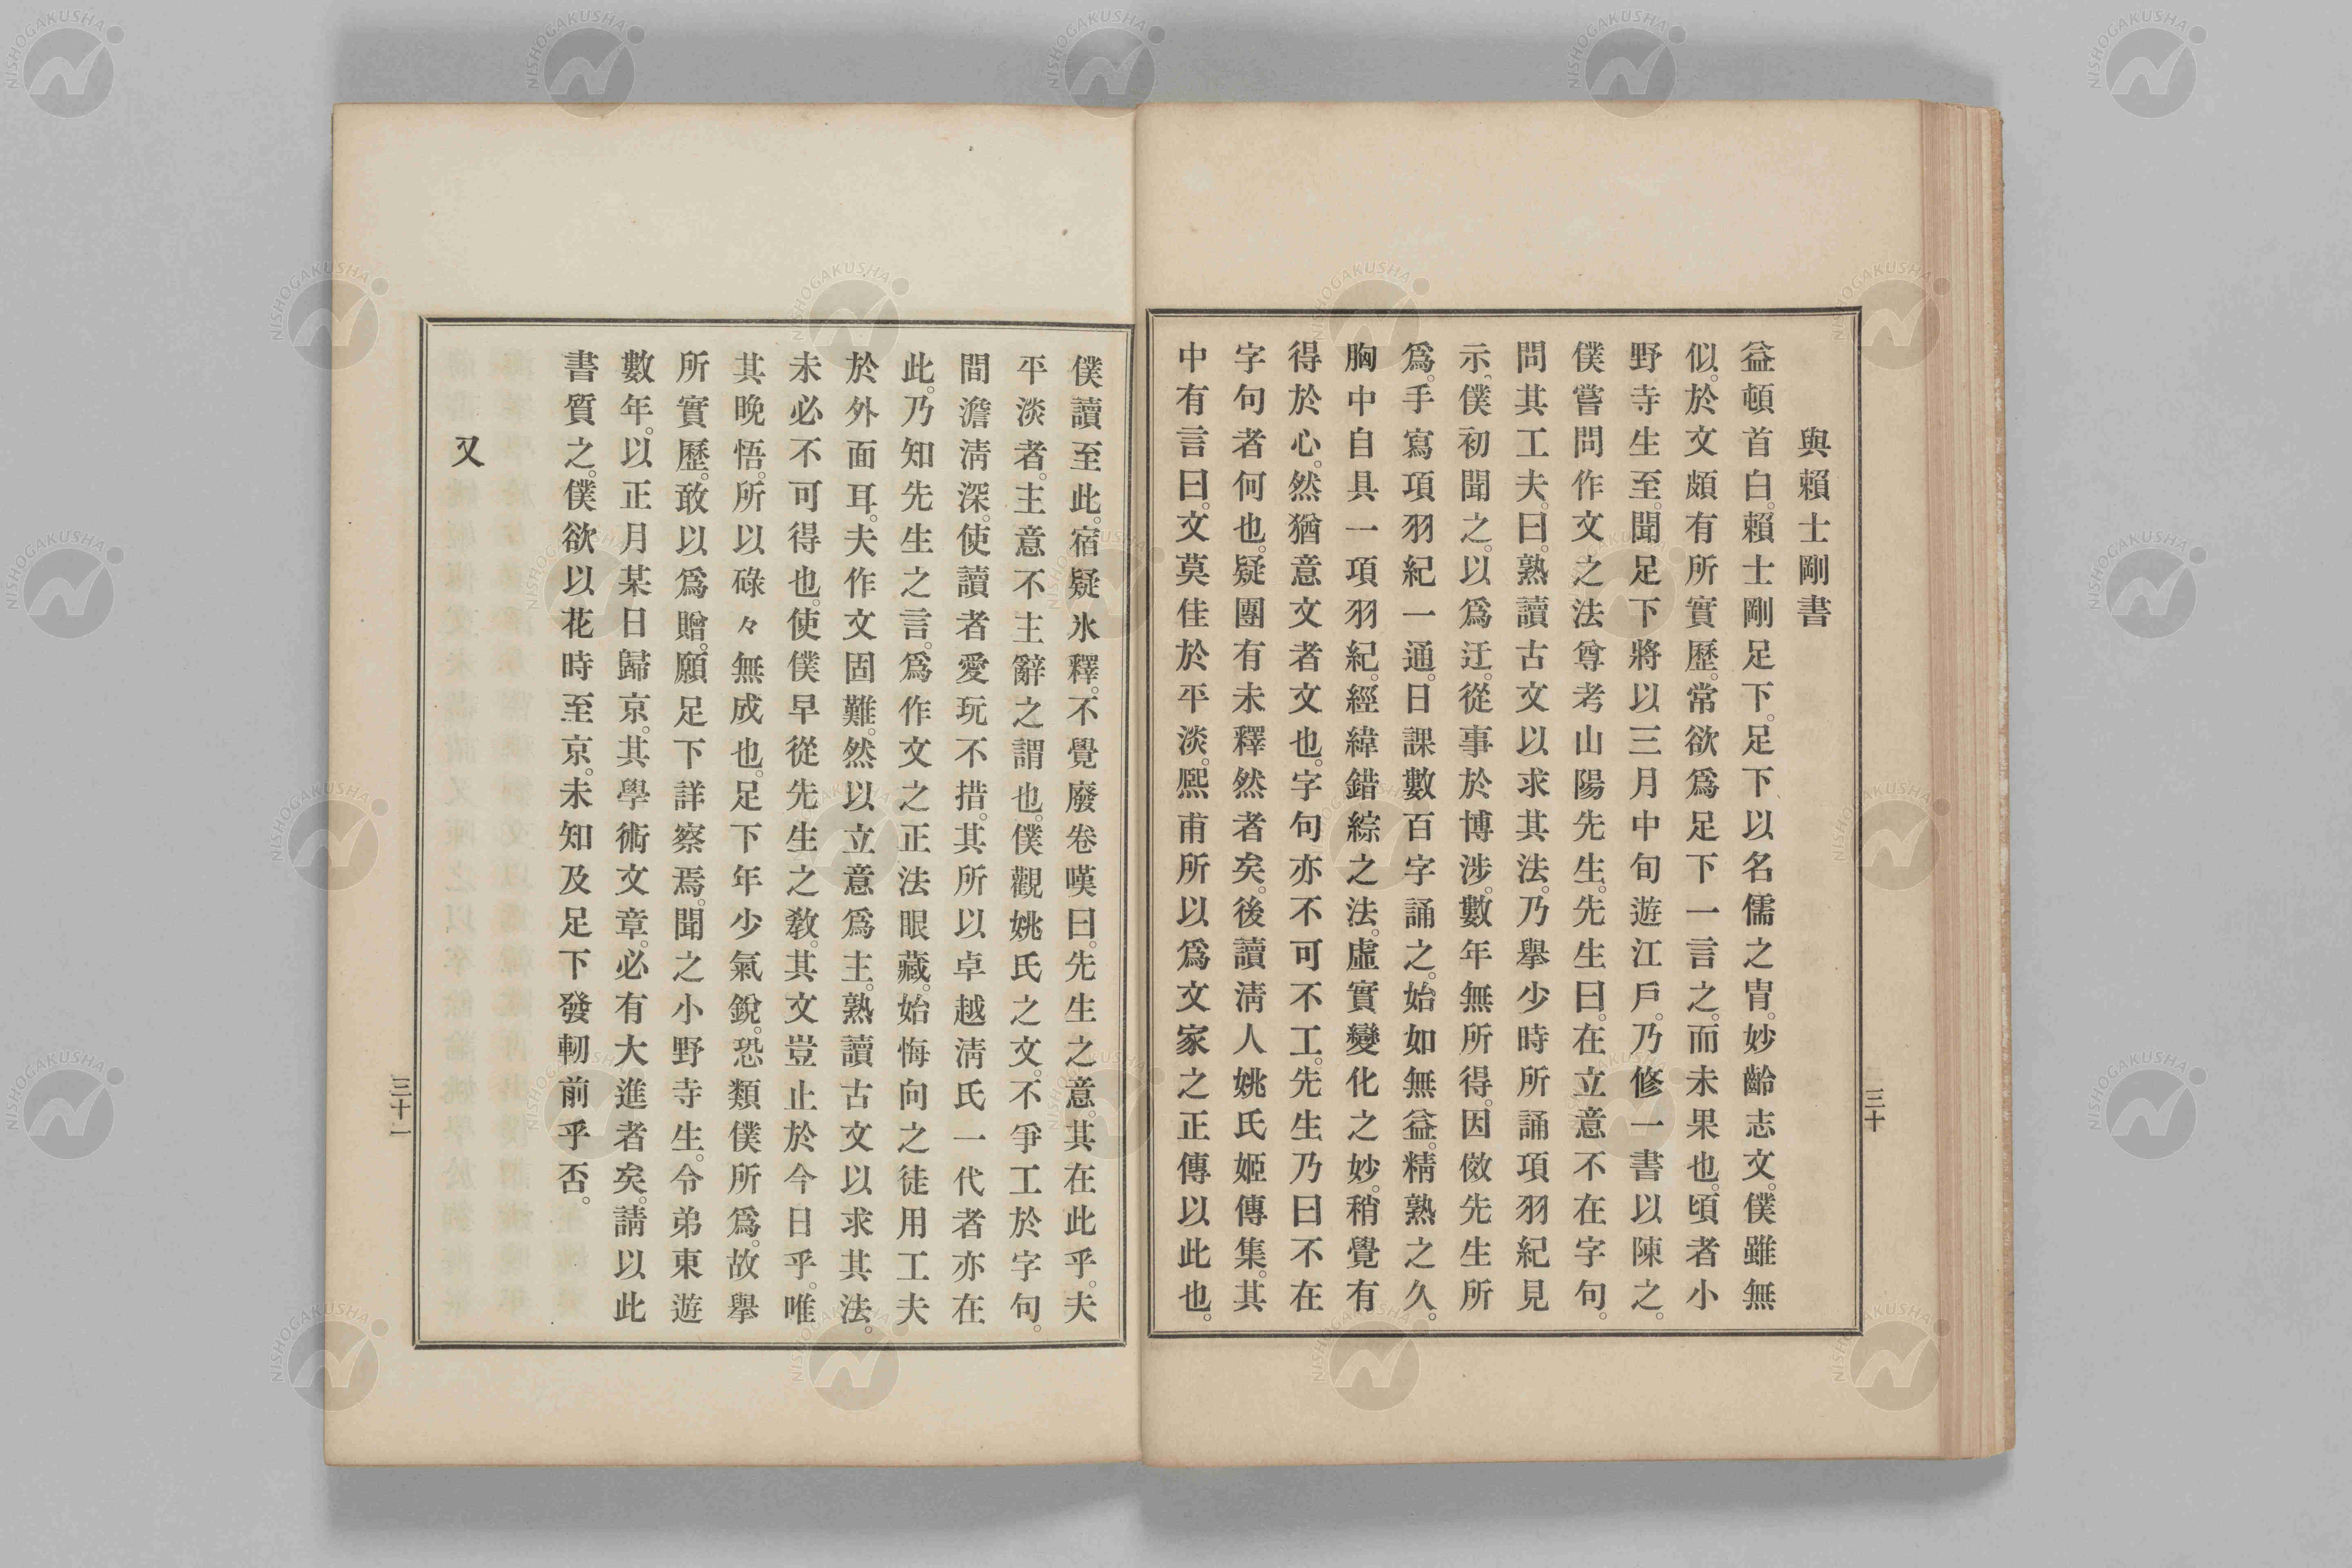 與賴士剛書
益頓首白。賴士剛足下。足下以名儒之冑。妙齡志文。僕雖無
似。於文頗有所實歷。常欲爲足下一言之。而未果也。頃者小
野寺生至。聞足下將以三月中旬遊江戶。乃修一書以陳之。
僕嘗問作文之法尊考山陽先生。先生曰。在立意不在字句。
問其工夫。曰。熟讀古文以求其法。乃擧少時所誦項羽紀見
示。僕初聞之。以爲迂。從事於博涉。數年無所得。因傚先生所
爲。手寫項羽紀一通。日課數百字誦之。始如無益。精熟之久。
胸中自具一項羽紀。經緯錯綜之法。虛實變化之妙。稍覺有
得於心。然猶意文者文也。字句亦不可不工。先生乃曰不在
字句者何也。疑團有未釋然者矣。後讀淸人姚氏姬傳集。其
中有言曰。文莫佳於平淡。熙甫所以爲文家之正傳以此也。
三十
僕讀至此。宿疑氷釋。不覺廢卷嘆曰。先生之意。其在此乎。夫
平淡者。主意不主辭之謂也。僕觀姚氏之文。不爭工於字句。
間澹淸深。使讀者愛玩不措。其所以卓越淸氏一代者亦在
此。乃知先生之言。爲作文之正法眼藏。始悔向之徒用工夫
於外面耳。夫作文固難。然以立意爲主。熟讀古文以求其法。
未必不可得也。使僕早從先生之敎。其文豈止於今日乎。唯
其晚悟。所以碌々無成也。足下年少氣銳。恐類僕所爲。故擧
所實歷。敢以爲贈。願足下詳察焉。聞之小野寺生。令弟東遊
數年。以正月某日歸京。其學術文章。必有大進者矣。請以此
書質之。僕欲以花時至京。未知及足下發軔前乎否。
又
三十一
NISHOGAKUSHA